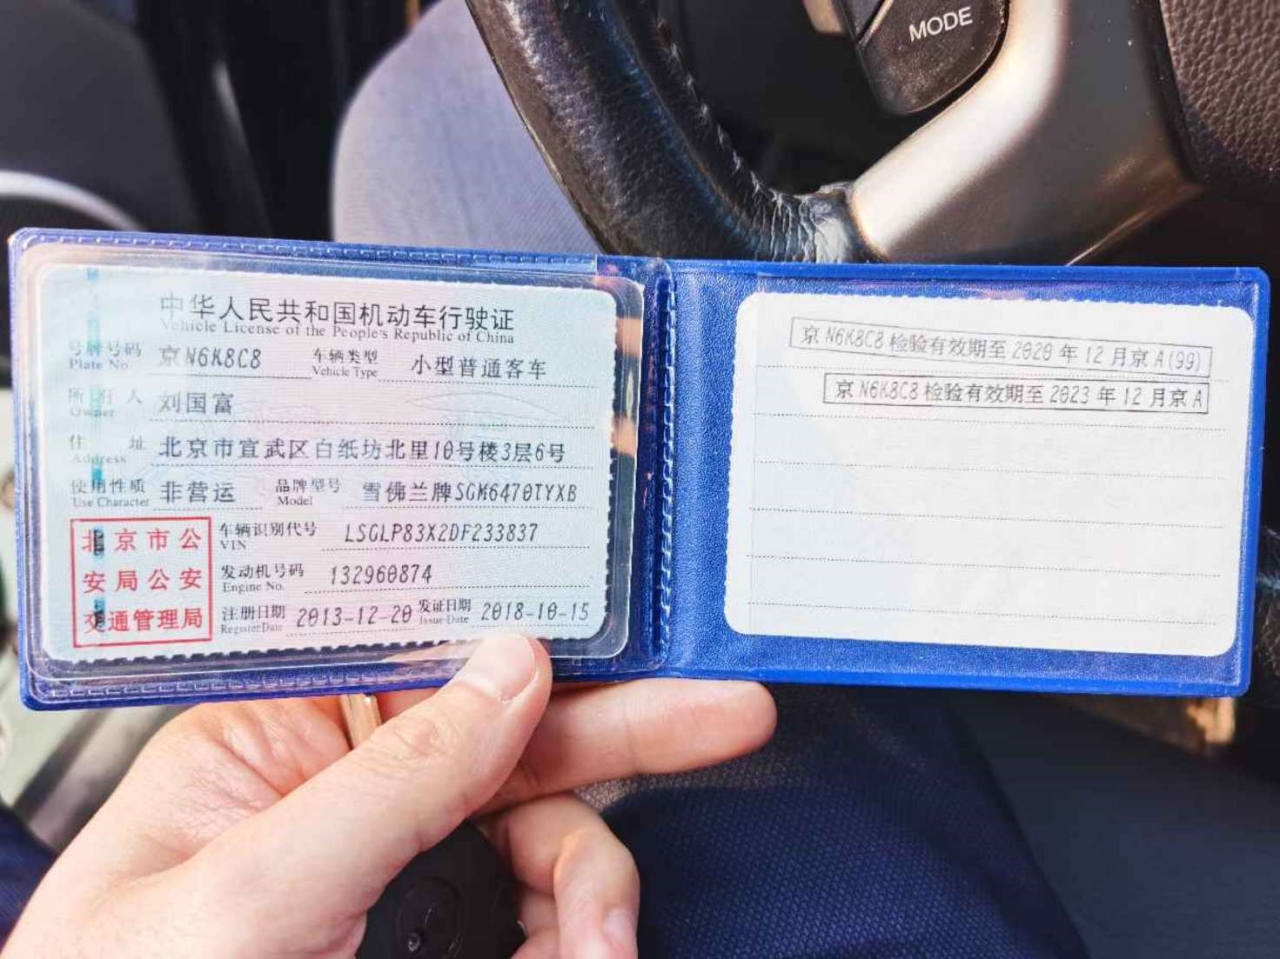 MODE
中华人民共和国机动车行驶证
Vehicle License of the People's Republic of China
号牌号码 京N6K8C8 车辆类型 小型普通客车
Plate No. Vehicle Type
所有人 刘国富
Owner
住址 北京市宣武区白纸坊北里10号楼3层6号
Address
使用性质 非营运 品牌型号 雪佛兰牌SGM6470TYXB
Use Character Model
北京市公
安局公安
交通管理局
车辆识别代号 LSGLP83X2DF233837
VIN
发动机号码 132960874
Engine No.
注册日期 2013-12-20 发证日期 2018-10-15
Register Date Issue Date
京N6K8C8检验有效期至2020年12月京A(99)
京N6K8C8检验有效期至2023年12月京A